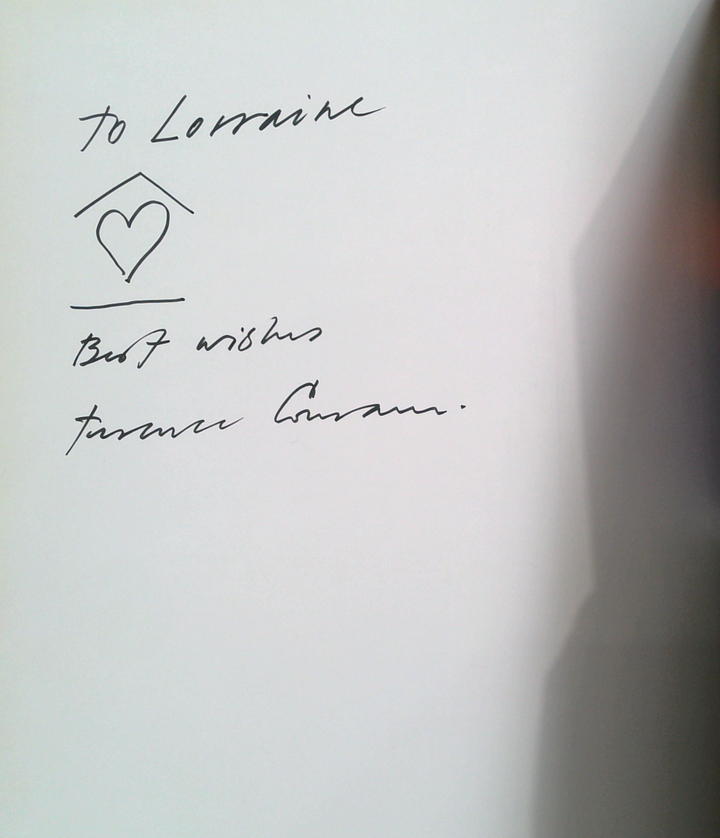 To Lorraine
Best wishes
Terence Conran.